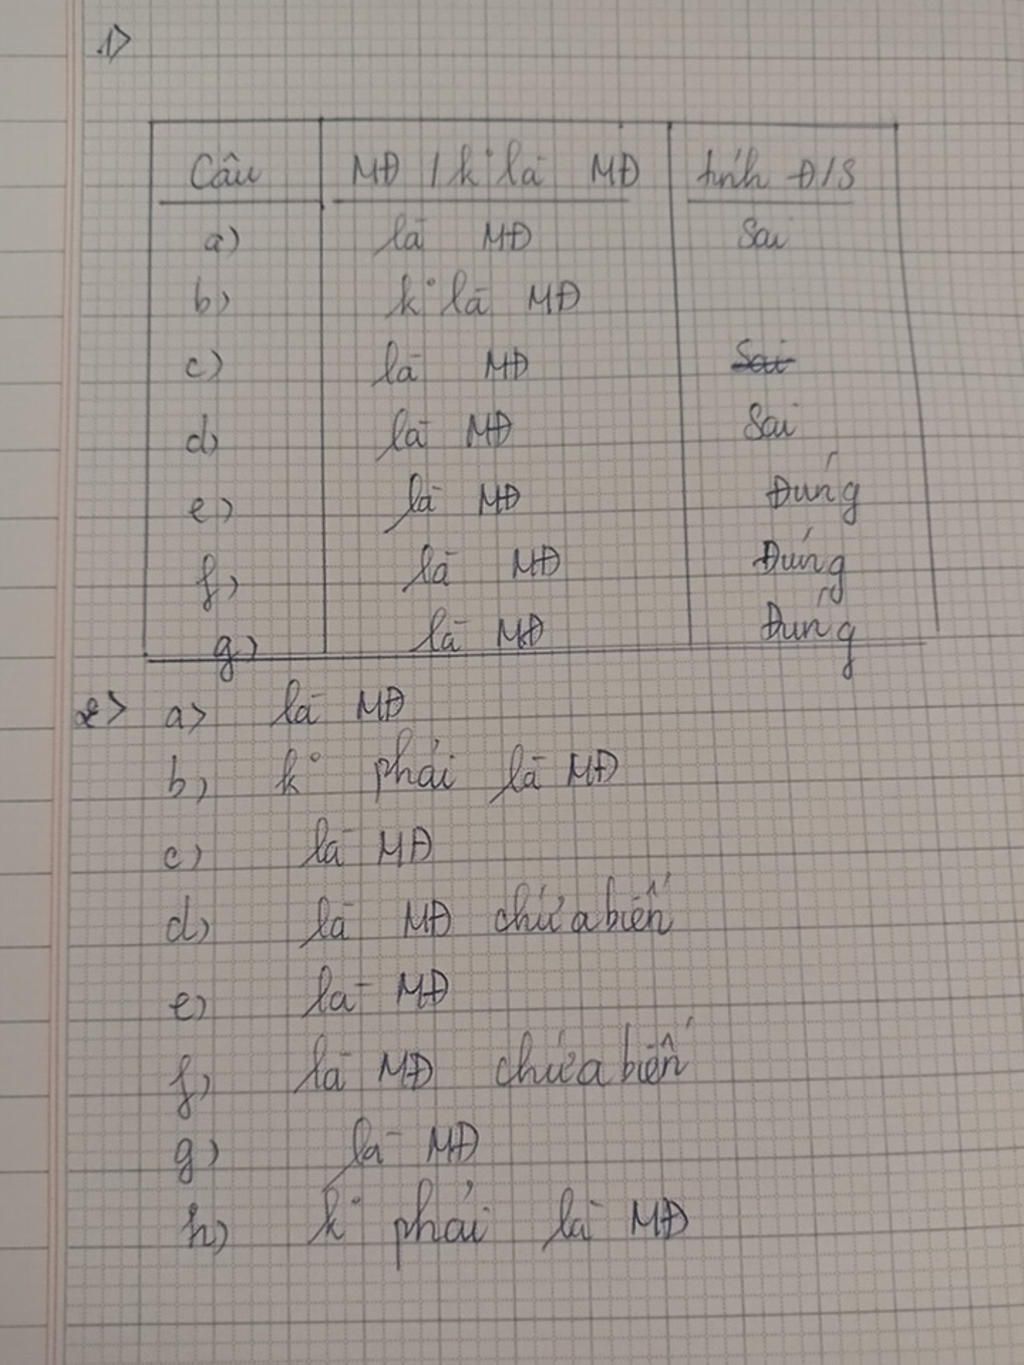 1>
Câu MĐ / k° là MĐ tính Đ/S
a) là MĐ Sai
b) k° là MĐ
c) là MĐ Sai
d) là MĐ Sai
e) là MĐ Đúng
f) là MĐ Đúng
g) là MĐ Đúng
2> a> là MĐ
b) k° phải là MĐ
c) là MĐ
d) là MĐ chứa biến
e) là MĐ
f) là MĐ chứa biến
g) là MĐ
h) k° phải là MĐ